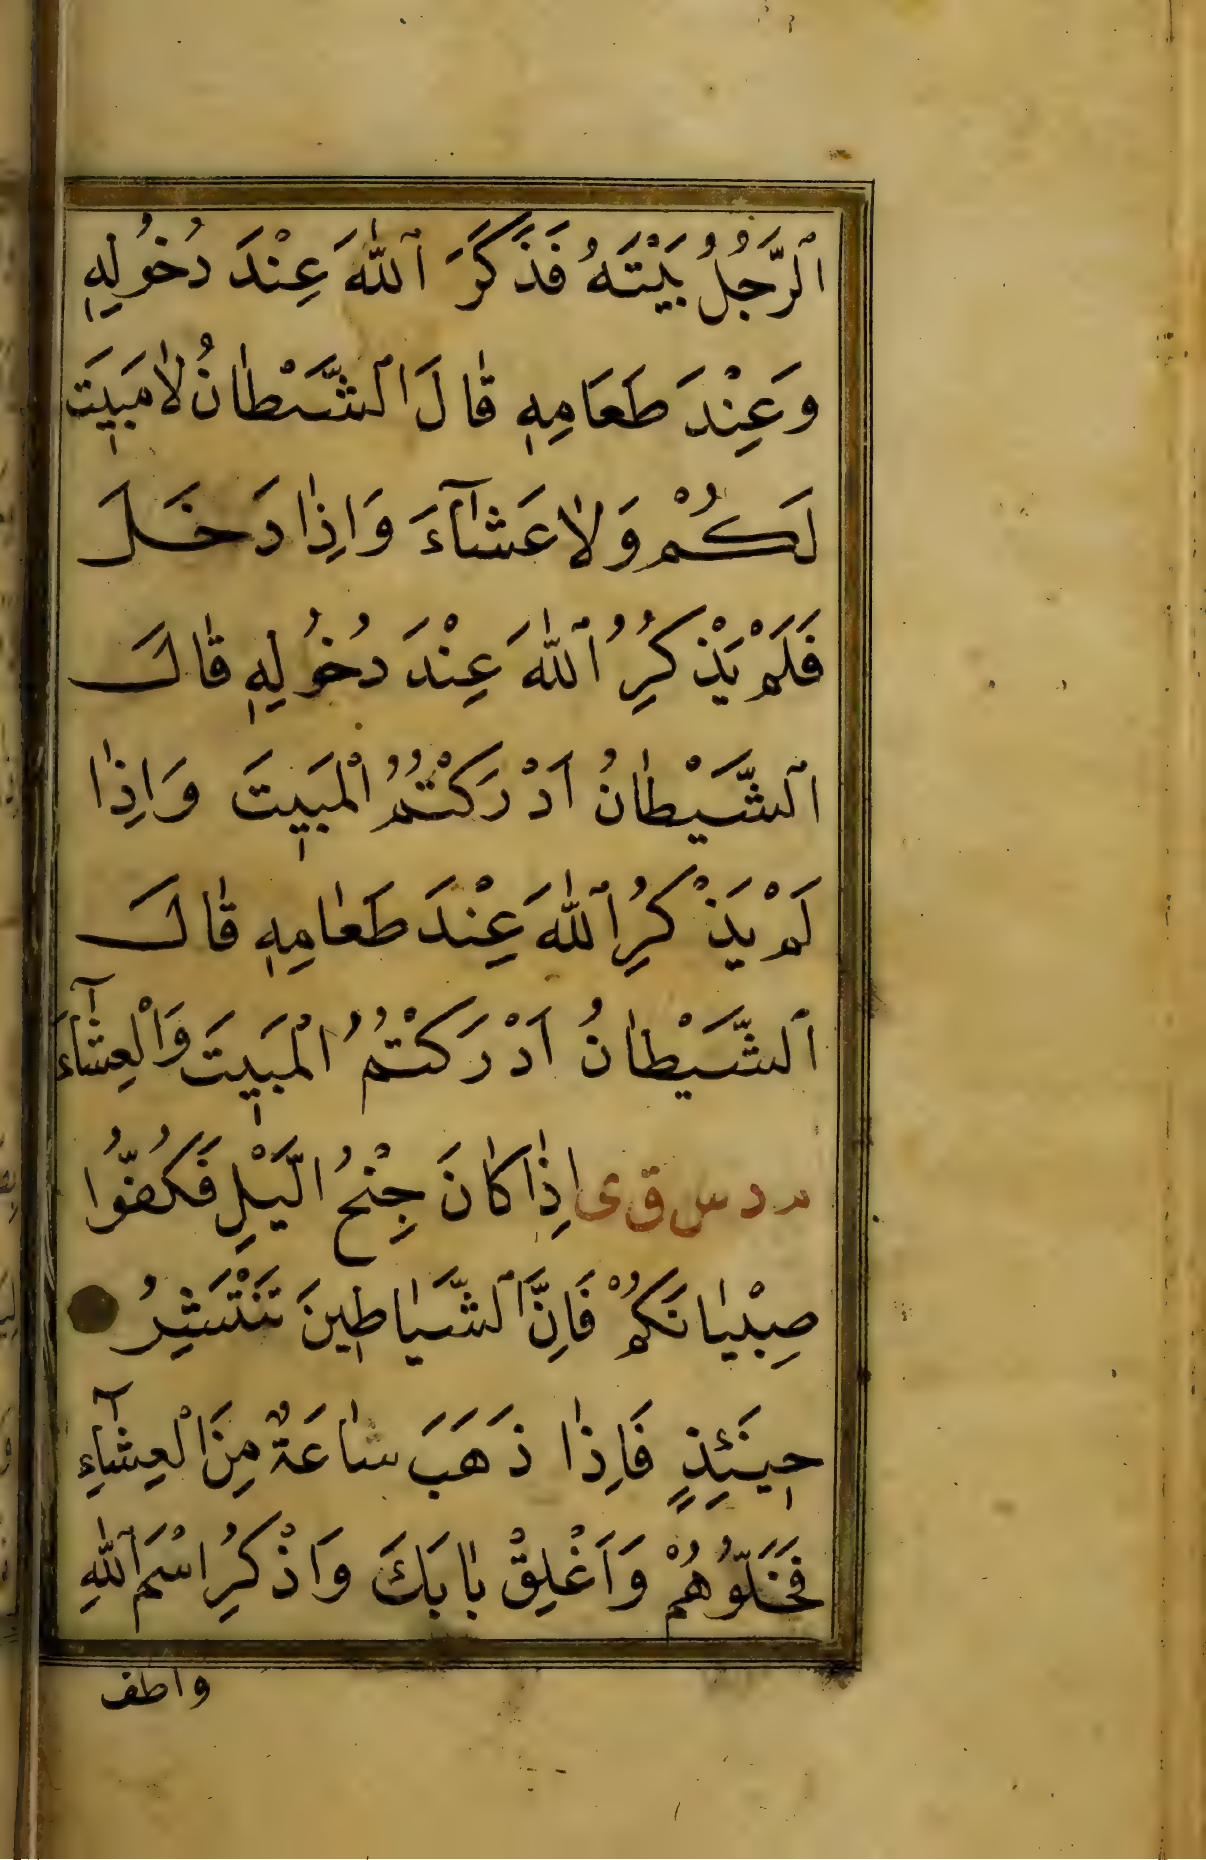 اَلرَّجُلُ بَيْتَهُ فَذَكَرَ اللّٰهَ عِنْدَ دُخُولِهٖ
وَعِنْدَ طَعَامِهٖ قٰالَ الشَّيْطٰانُ لٰا مَبٖيتَ
لَكُمْ وَلٰا عَشٰٓاءَ وَاِذٰا دَخَلَ
فَلَمْ يَذْكُرِ اللّٰهَ عِنْدَ دُخُولِهٖ قٰالَ
اَلشَّيْطٰانُ اَدْرَكْتُمُ الْمَبٖيتَ وَاِذٰا
لَمْ يَذْكُرِ اللّٰهَ عِنْدَ طَعٰامِهٖ قٰالَ
اَلشَّيْطٰانُ اَدْرَكْتُمُ الْمَبٖيتَ وَالْعِشٰٓاءَ
م د س ق ى اِذٰا كٰانَ جِنْحُ الَّيْلِ فَكُفُّوا
صِبْيٰانَكُمْ فَاِنَّ الشَّيٰاطٖينَ تَنْتَشِرُ
حٖينَئِذٍ فَاِذٰا ذَهَبَ سٰاعَةٌ مِنَ الْعِشٰٓاءِ
فَخَلُّوهُمْ وَاَغْلِقْ بٰابَكَ وَاذْكُرِ اسْمَ اللّٰهِ
واطف